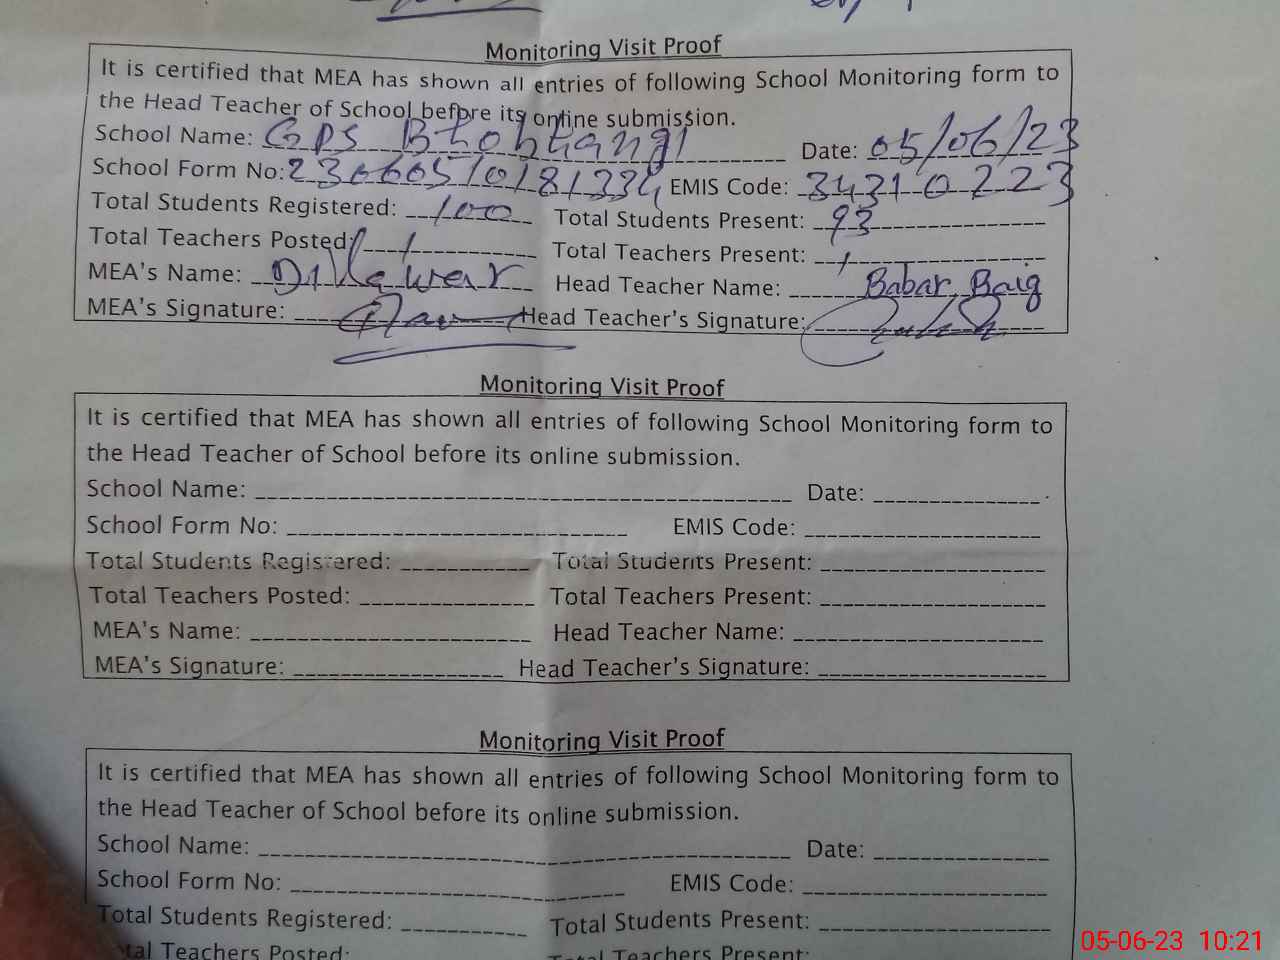 Monitoring Visit Proof
It is certified that MEA has shown all entries of following School Monitoring form to
the Head Teacher of School before its online submission.
School Name: GPS Date: 05/06/23
School Form No: EMIS Code: 34310223
Total Students Registered: 100 Total Students Present: 93
Total Teachers Posted: 1 Total Teachers Present: 1
MEA's Name: Dilawar Head Teacher Name: Babar Baig
MEA's Signature: Head Teacher's Signature:
Monitoring Visit Proof
It is certified that MEA has shown all entries of following School Monitoring form to
the Head Teacher of School before its online submission.
School Name: Date:
School Form No: EMIS Code:
Total Students Registered: Total Students Present:
Total Teachers Posted: Total Teachers Present:
MEA's Name: Head Teacher Name:
MEA's Signature: Head Teacher's Signature:
Monitoring Visit Proof
It is certified that MEA has shown all entries of following School Monitoring form to
the Head Teacher of School before its online submission.
School Name: Date:
School Form No: EMIS Code:
Total Students Registered: Total Students Present:
Total Teachers Posted: Total Teachers Present:
05-06-23 10:21